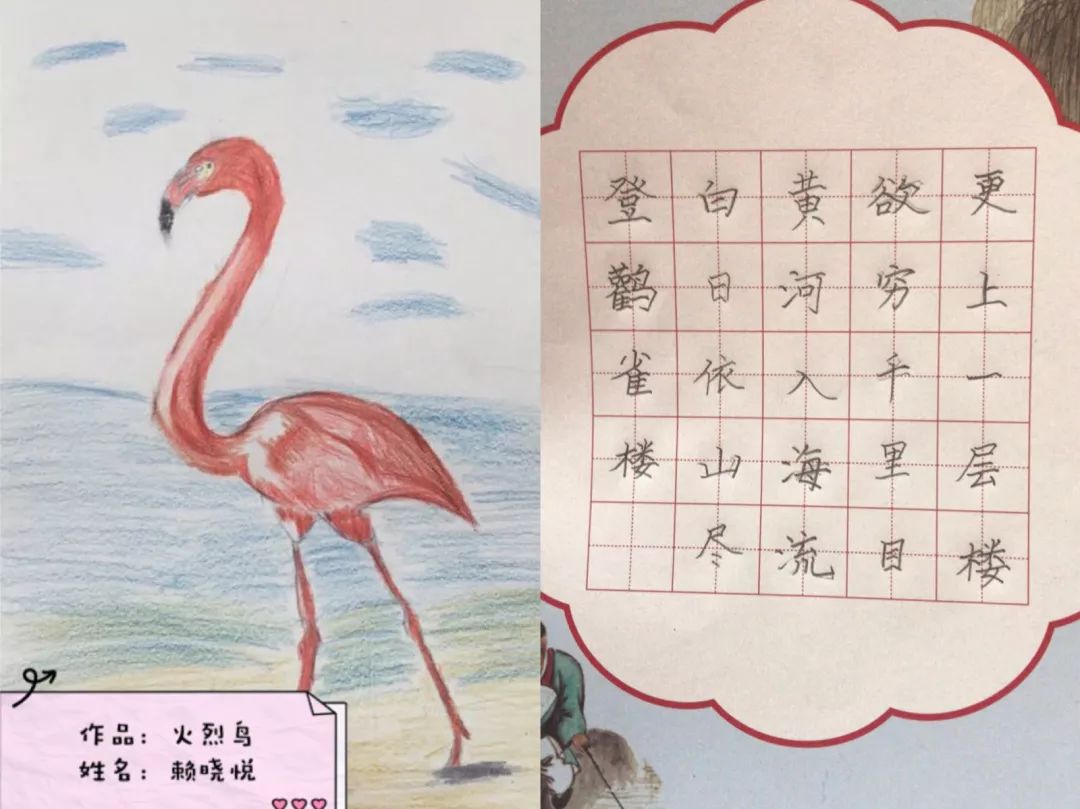 作品：火烈鸟
姓名：赖晓悦
登鹳雀楼
白日依山尽
黄河入海流
欲穷千里目
更上一层楼